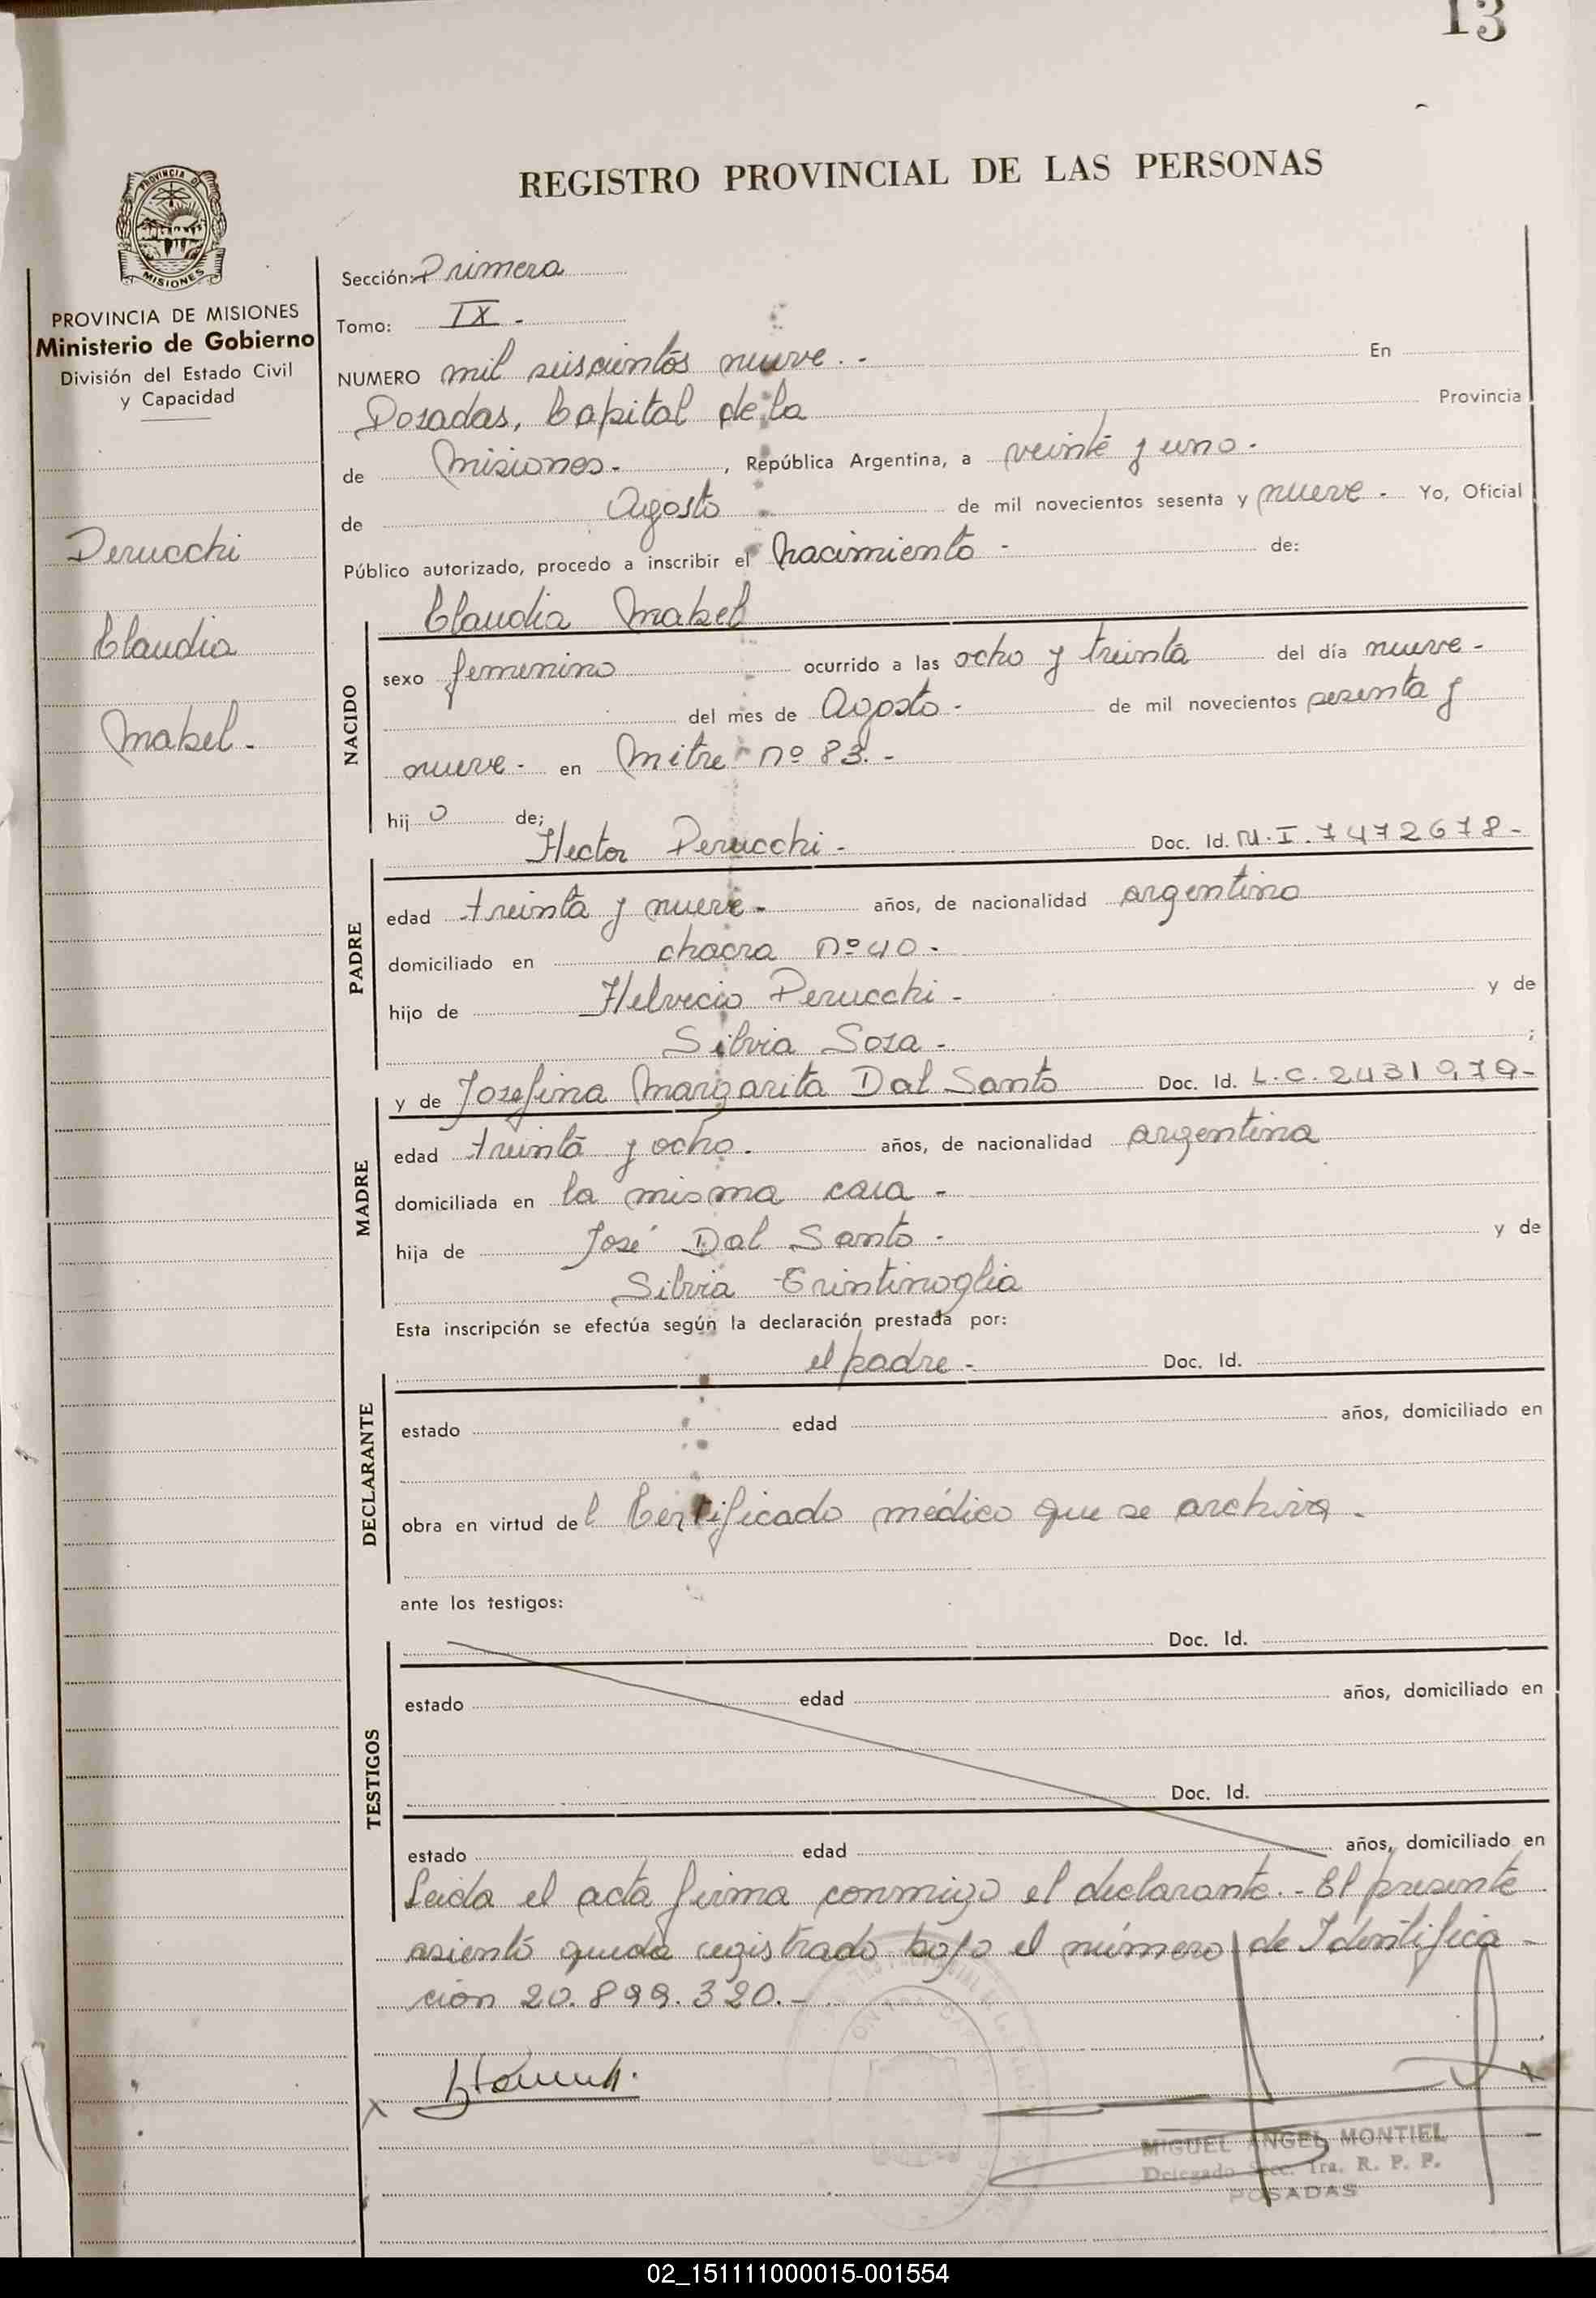 13
REGISTRO PROVINCIAL DE LAS PERSONAS
PROVINCIA DE
MISIONES
PROVINCIA DE MISIONES
Ministerio de Gobierno
División del Estado Civil
y Capacidad
Perucchi
Claudia
Mabel.-
Sección: Primera
Tomo: IX.-
NUMERO mil seiscientos nueve.- En
Posadas, Capital de la Provincia
de Misiones.- , República Argentina, a veinte y uno.-
de Agosto de mil novecientos sesenta y nueve.- Yo, Oficial
Público autorizado, procedo a inscribir el Nacimiento.- de:
Claudia Mabel
NACIDO
sexo femenino ocurrido a las ocho y treinta del día nueve.-
del mes de Agosto.- de mil novecientos sesenta y
nueve.- en Mitre nº 83.-
hij o de;
Hector Perucchi.- Doc. Id. M.I. 7472678-
PADRE
edad treinta y nueve.- años, de nacionalidad argentino
domiciliado en chacra nº 40.-
hijo de Helvecio Perucchi.- y de
Silvia Sosa.- ;
y de Josefina Margarita Dal Santo Doc. Id. L.C. 2431979-
MADRE
edad treinta y ocho. años, de nacionalidad argentina
domiciliada en la misma casa.-
hija de José Dal Santo.- y de
Silvia
Esta inscripción se efectúa según la declaración prestada por:
el padre.- Doc. Id.
DECLARANTE
estado edad años, domiciliado en
obra en virtud del Certificado médico que se archiva.-
ante los testigos:
Doc. Id.
TESTIGOS
estado edad años, domiciliado en
Doc. Id.
estado edad años, domiciliado en
Leida el acta firma conmigo el declarante.- El presente
asiento queda registrado bajo el número de Identifica-
cion 20.899.320.-
MIGUEL ANGEL MONTIEL
Delegado Secc. 1ra. R. P. P.
POSADAS
02_151111000015-001554